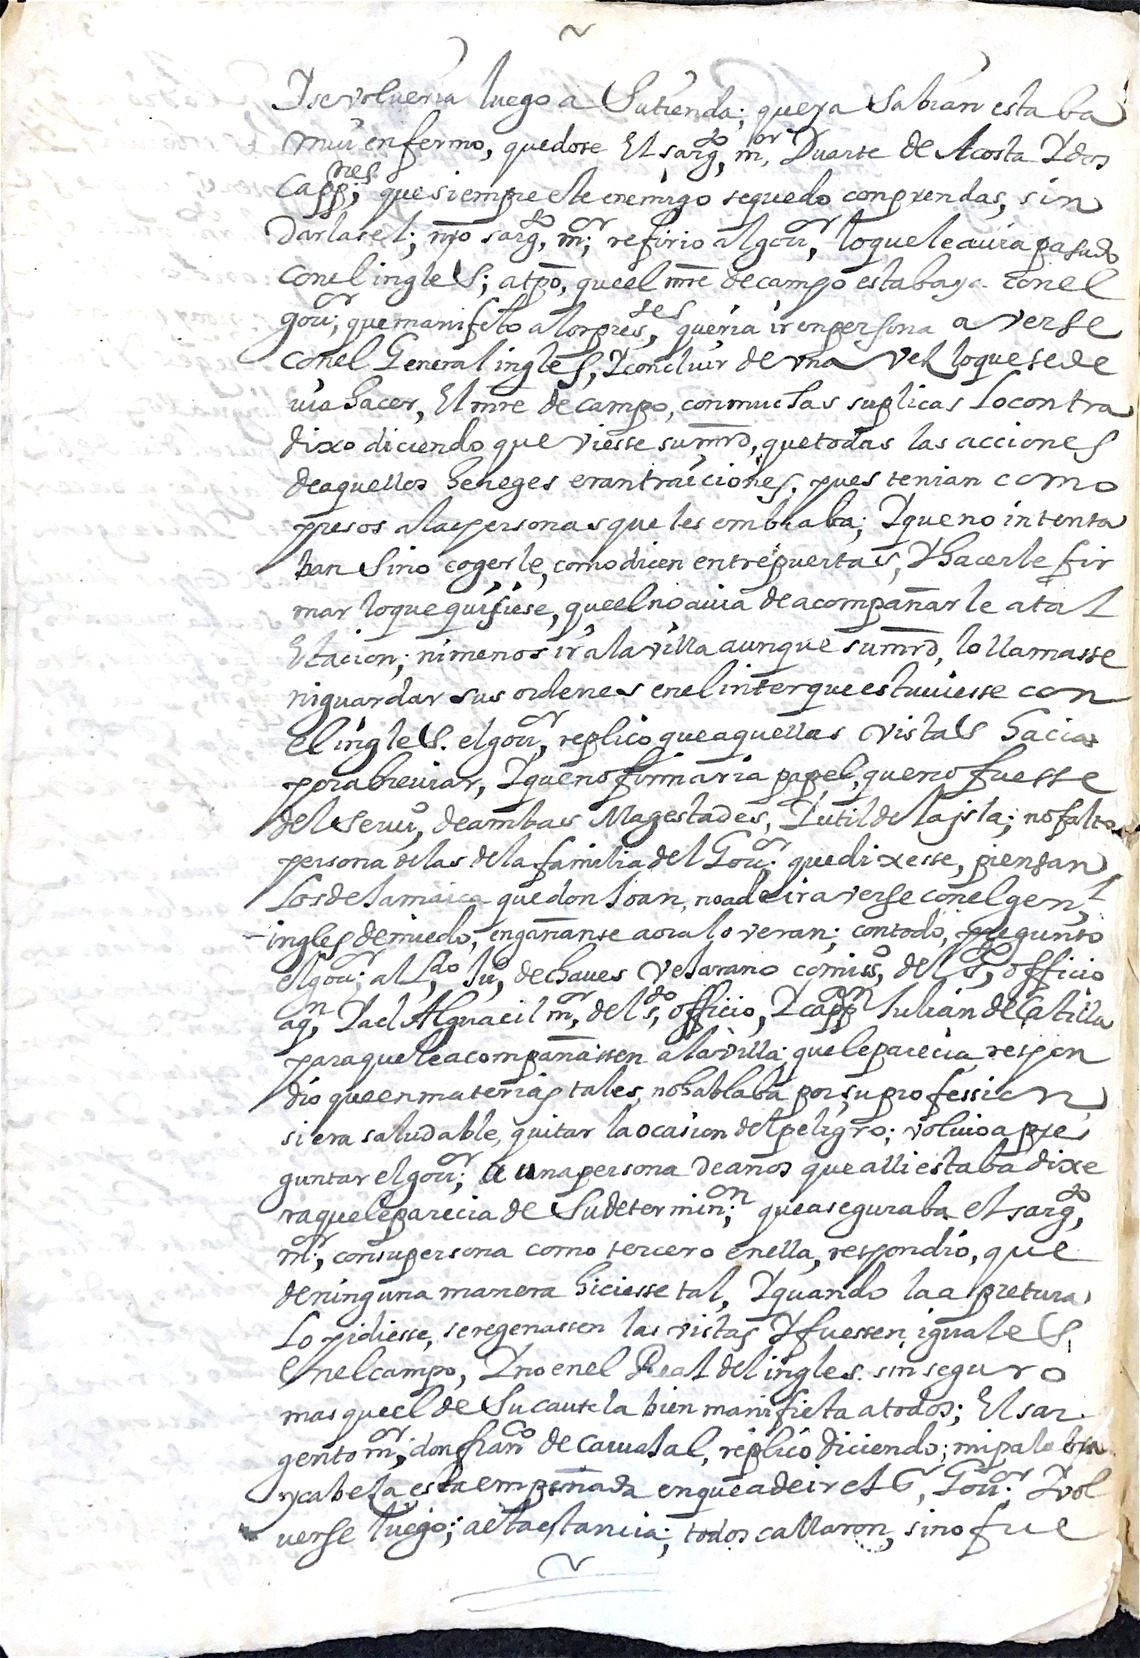 Y se volueria luego a Su tienda; que ya Sabian estaba
muy enfermo, quedose El sargto, mor, Duarte de Acosta Y dos
Cappnes; que siempre este enemigo se quedo con prendas, sin
Darlas el; nro sargto, mor; refirio al gour, lo que le auia pasado
con el ingleS; a tpō, que el mre de campo estaba ya con el
gour; que manifesto a los pressetes, queria ir en persona a verse
con el General ingleS, Y concluir de vna vez lo que se de
uia hacer, El mre de campo, con muchas suplicas Lo contra
dixo diciendo que viesse su mrd, que todas las acciones
de aquellos hereges eran traiciones, pues tenian como
presos a las personas que les embiaba; Y que no intenta
ban Sino cogerle, como dicen entre puertas, Y hacerle fir
mar lo que quisiese, que el no auia de acompañarle a tal
Estacion; ni menos ir a la villa aunque su mrd, lo llamasse
ni guardar sus ordenes en el inter que estuuiesse con
el ingleS. el gour, replico que aquellas vistaS hacia
por abreuiar, Y que no firmaria papel, que no fuesse
del Seruo, de ambas Magestades, Y util de la jsla; no falto
persona de las de la familia del Gour. que dixesse, piensan
Los de Jamaica que don Joan, no a de ir a verse con el genl,
ingles de miedo, engañanse aora lo veran; con todo, pregunto
el gour; al Ldo, Ju, de chaues Vejarano comisso, del Sto, officio
aqn, Y al Alguacil mor, del sto, officio, Y cappn Julian de Castilla
para que le acompañassen a la villa; que le parecia, respon
dio que en materias tales, no hablaba por su profession,
si era saludable, quitar la ocasion del peligro; voluio a pre
guntar el gour; a una persona de años que alli estaba dixe
ra que le parecia de Su determinon; que aseguraba, el sargto,
mor; con su persona como tercero en ella, respondio, que
de ninguna manera hiciesse tal, Y quando la apretura
Lo pidiesse, se regenassen las vistas Y fuessen, igualeS
En el campo, Y no en el Real del ingles. sin seguro
mas que el de Su cautela bien manifiesta a todos; El sar
gento mor; don franco de caruajal, replico diciendo; mi palabra
y cabeza esta empeñada en que a de ir el Sr, Gour; Y vol
uerse luego; a esta estancia; todos callaron, sino fue